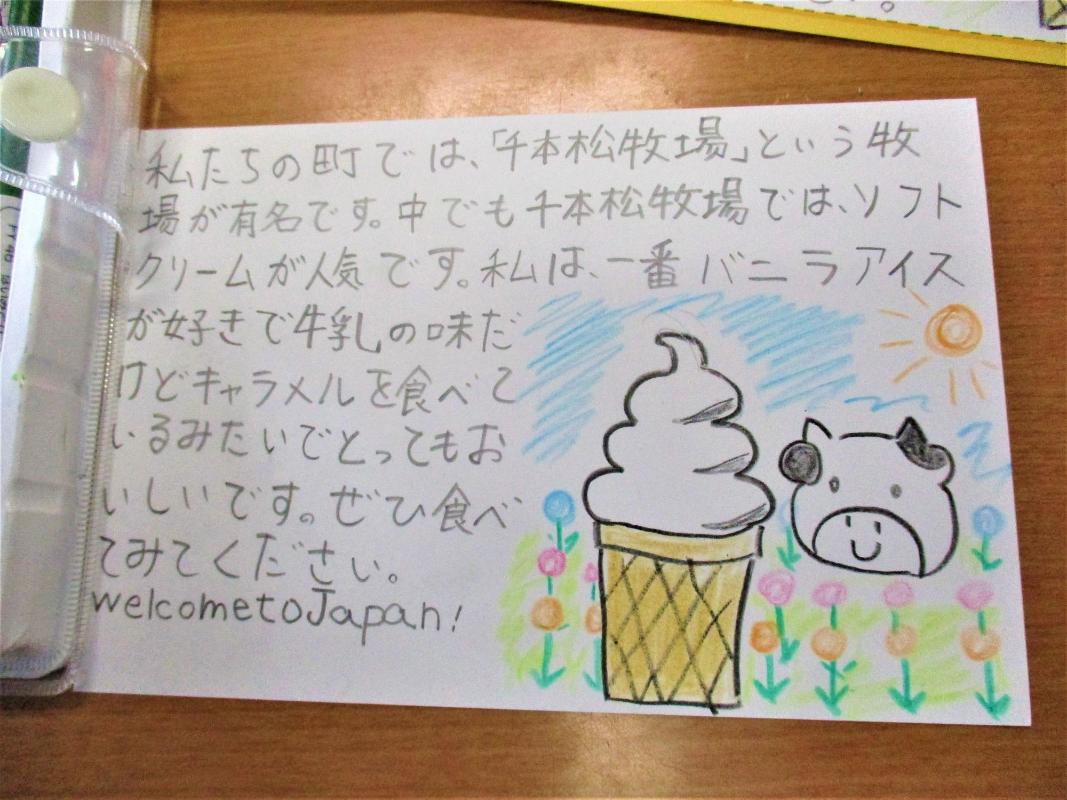 私たちの町では、「千本松牧場」という牧
場が有名です。中でも千本松牧場では、ソフト
クリームが人気です。私は、一番バニラアイス
が好きで牛乳の味だ
けどキャラメルを食べて
いるみたいでとってもお
いしいです。ぜひ食べ
てみてください。
welcometoJapan!